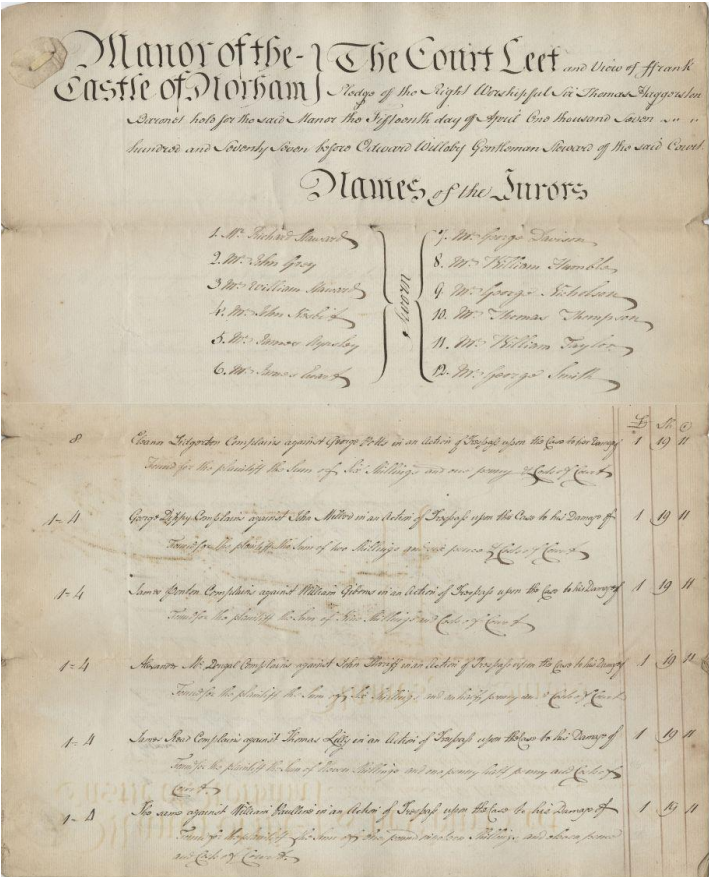 Manor of the- } The Court Leet and View of ffrank
Castle of Norham } Pledge of the Right Worshipful Sir Thomas Haggerston
Baronet held for the said Manor the Fifteenth day of April One thousand Seven
hundred and Seventy Seven before Edward Willaby Gentleman Steward of the said Court.
Names of the Jurors
1. Mr. Richard
2. Mr. John Grey
3. Mr. William
4. Mr. John Nesbit
5. Mr. James
6. Mr. James Ewart
Sworn
7. Mr. George Davison
8. Mr. William Humble
9. Mr. George Nicholson
10. Mr. Thomas Thompson
11. Mr. William Taylor
12. Mr. George Smith
£ Sh D
8 Eleanor Complains against George Potts in an Action of Trespass upon the Case to her Damage of 1 19 11
Found for the plaintiff the Sum of Six Shillings and one penny & Costs of Court
1=4 George Dippy Complains against John in an Action of Trespass upon the Case to his Damage of 1 19 11
Found for the plaintiff the Sum of two Shillings and pence & Costs of Court
1=4 James Complains against William Gibons in an Action of Trespass upon the Case to his Damage of 1 19 11
Found for the plaintiff the Sum of Shillings and Costs of Court
1=4 Alexander Mc.Dougal Complains against John in an Action of Trespass upon the Case to his Damage of 1 19 11
Found for the plaintiff the Sum of Six Shillings and an half penny and Costs of Court
1=4 James Read Complains against Thomas Lilly in an Action of Trespass upon the Case to his Damage of 1 19 11
Found for the plaintiff the Sum of Shillings and one penny half penny and Costs of
Court
1=4 The same against William in an Action of Trespass upon the Case to his Damage of 1 19 11
Found for the plaintiff the Sum of one pound nineteen Shillings and eleven pence
and Costs of Court